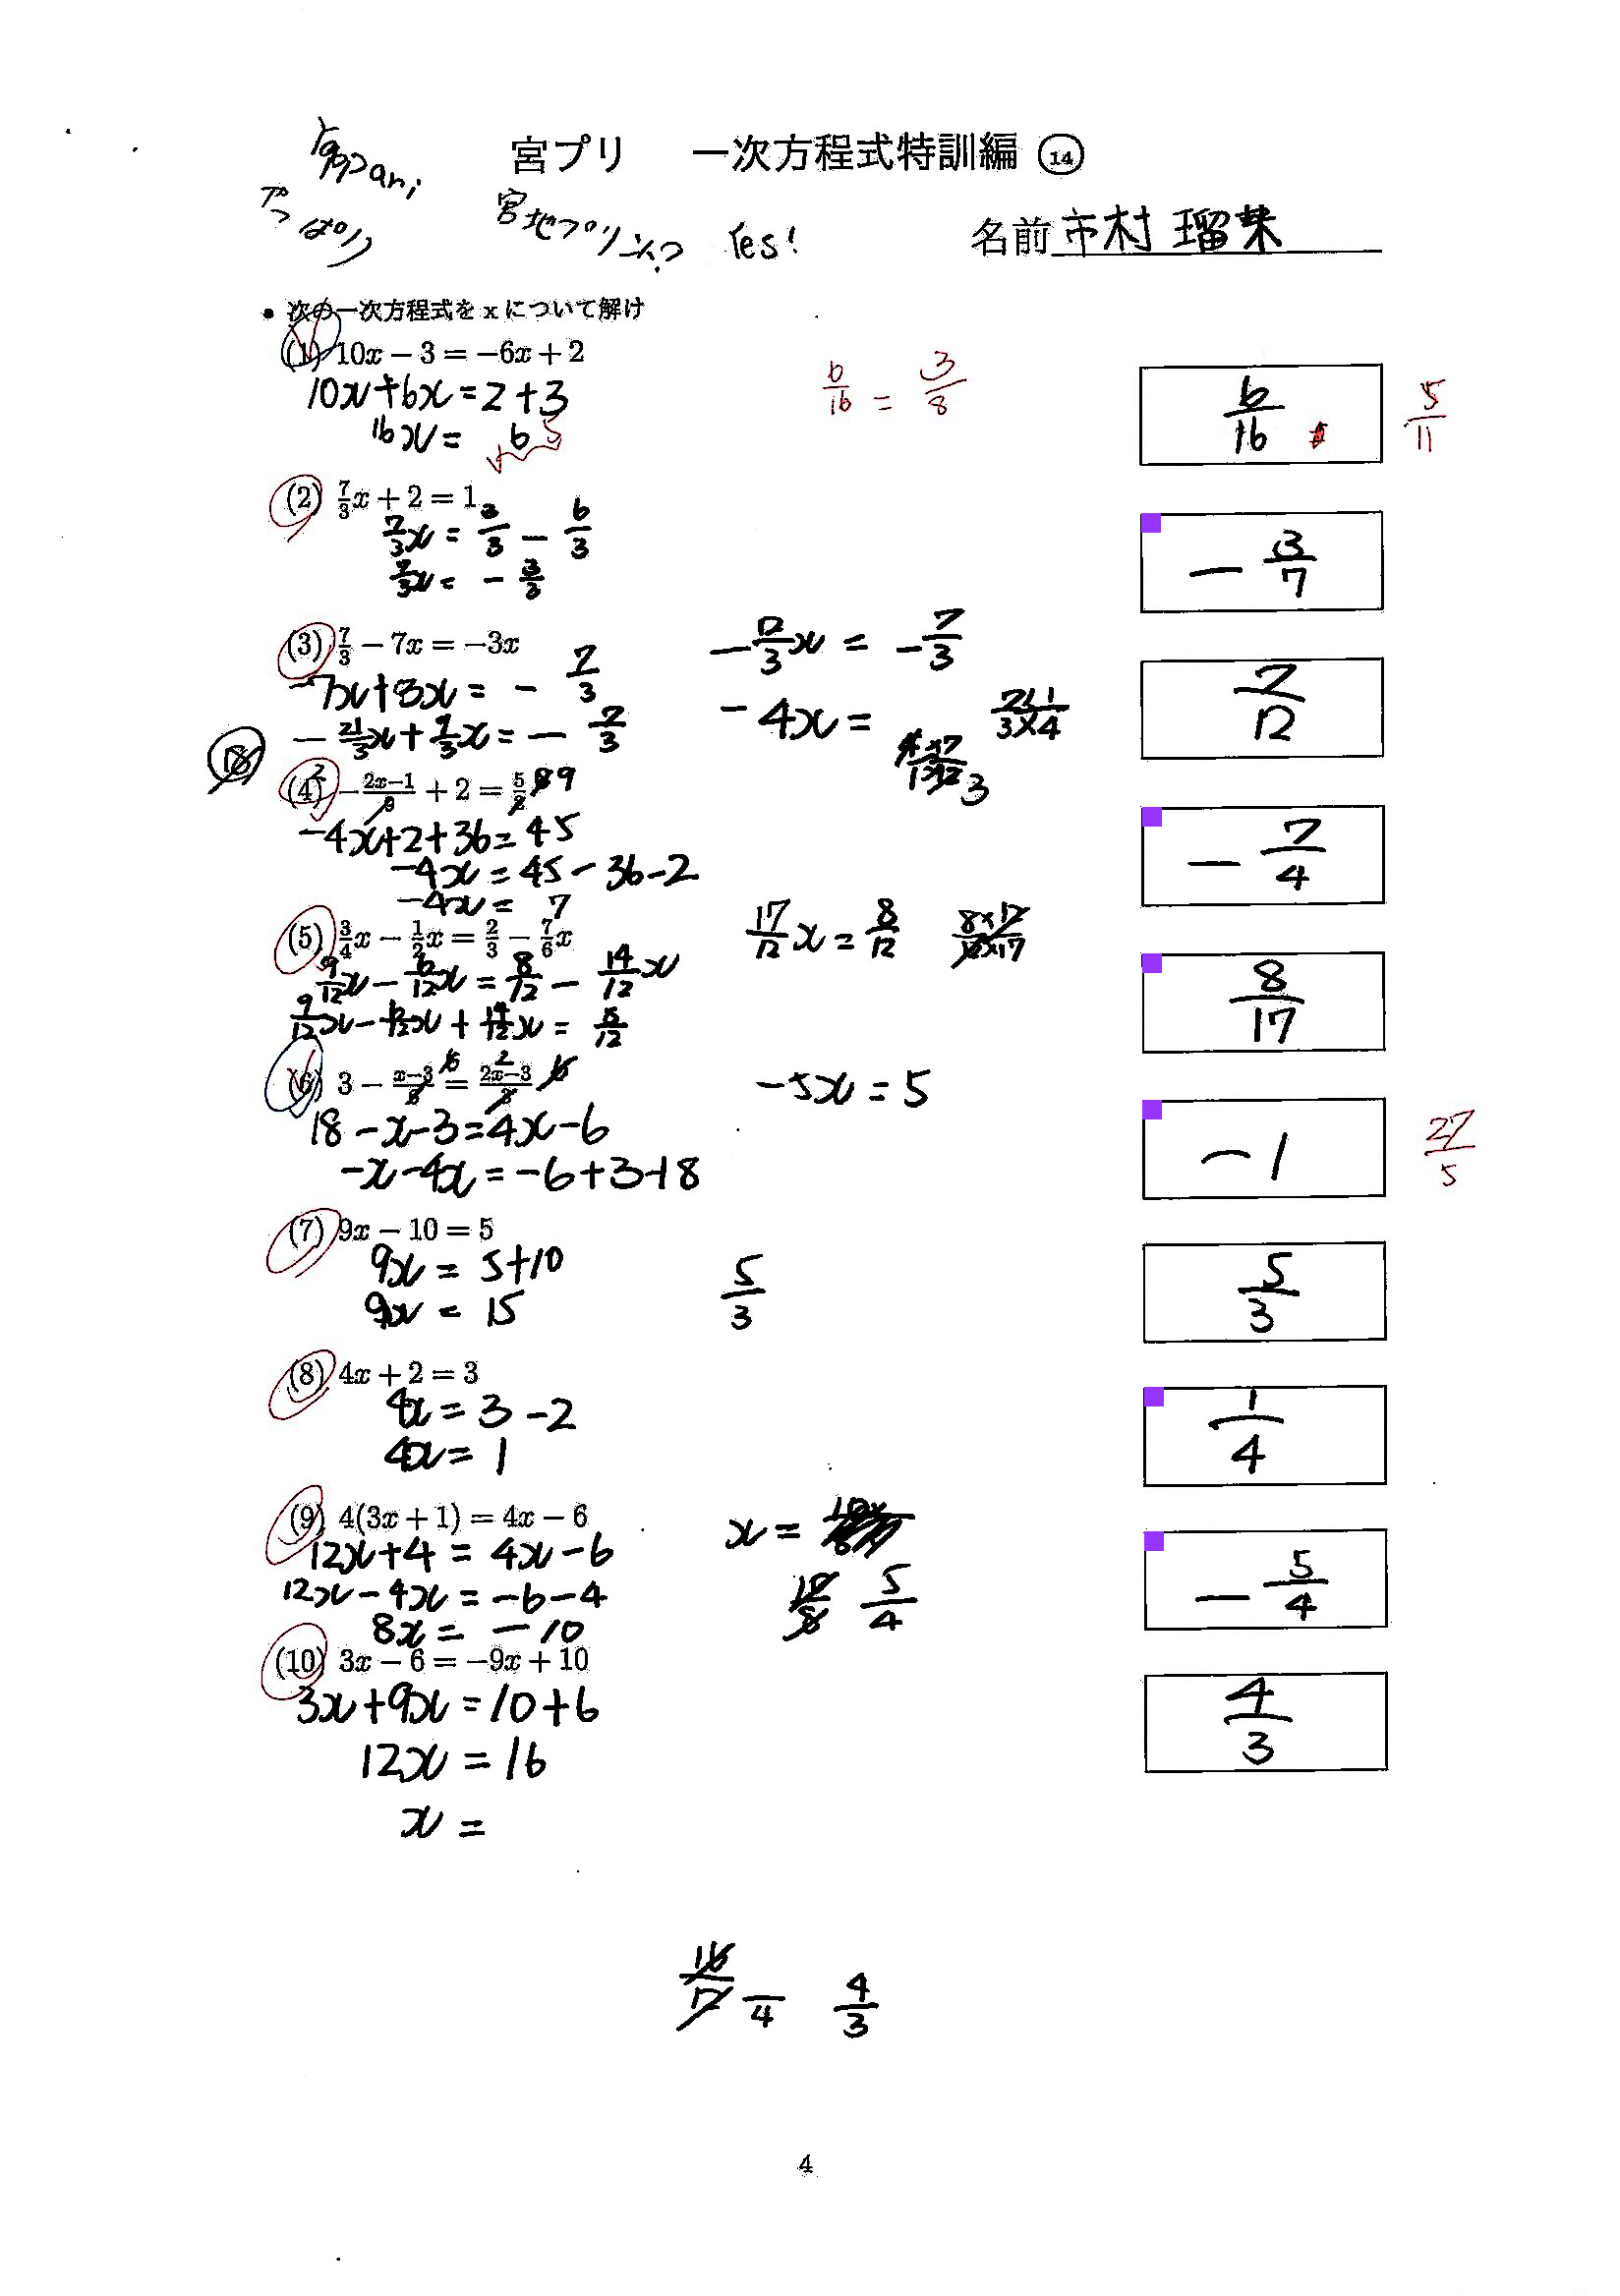 宮プリ 一次方程式特訓編 14
宮地プリ
Yes!
名前 市村
• 次の一次方程式を x について解け
(1) 10x − 3 = −6x + 2
10x+6x=2+3
16x= 6 5
6/16 = 3/8
6/16
5/11
(2) 7/3x + 2 = 1
7/3x = 3/3 − 6/3
7/3x = − 3/3
− 3/7
(3) 7/3 − 7x = −3x
−7x+3x = − 7/3
−21/3x+9/3x=− 7/3
−12/3x = −7/3
−4x =
7×1/3×4
7/12
(4) −2x−1/9 + 2 = 5/2
−4x+2+36=45
−4x=45−36−2
−4x= 7
− 7/4
(5) 3/4x − 1/2x = 2/3 − 7/6x
9/12x−6/12x=8/12−14/12x
9/12x−6/12x+14/12x=8/12
17/12x=8/12
8×12/12×17
8/17
(6) 3 − x−3/6 = 2x−3/3
18−x−3=4x−6
−x−4x=−6+3−18
−5x=5
−1
27/5
(7) 9x − 10 = 5
9x = 5+10
9x = 15
5/3
5/3
(8) 4x + 2 = 3
4x = 3 −2
4x= 1
1/4
(9) 4(3x + 1) = 4x − 6
12x+4 = 4x−6
12x−4x = −6−4
8x= −10
x =
10/8 5/4
− 5/4
(10) 3x − 6 = −9x + 10
3x+9x=10+6
12x = 16
x =
4/3
16/12 4 4/3
4